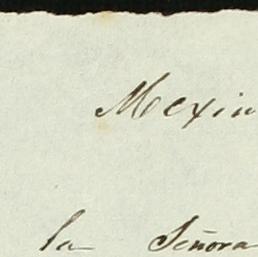 Mexin
la Señora